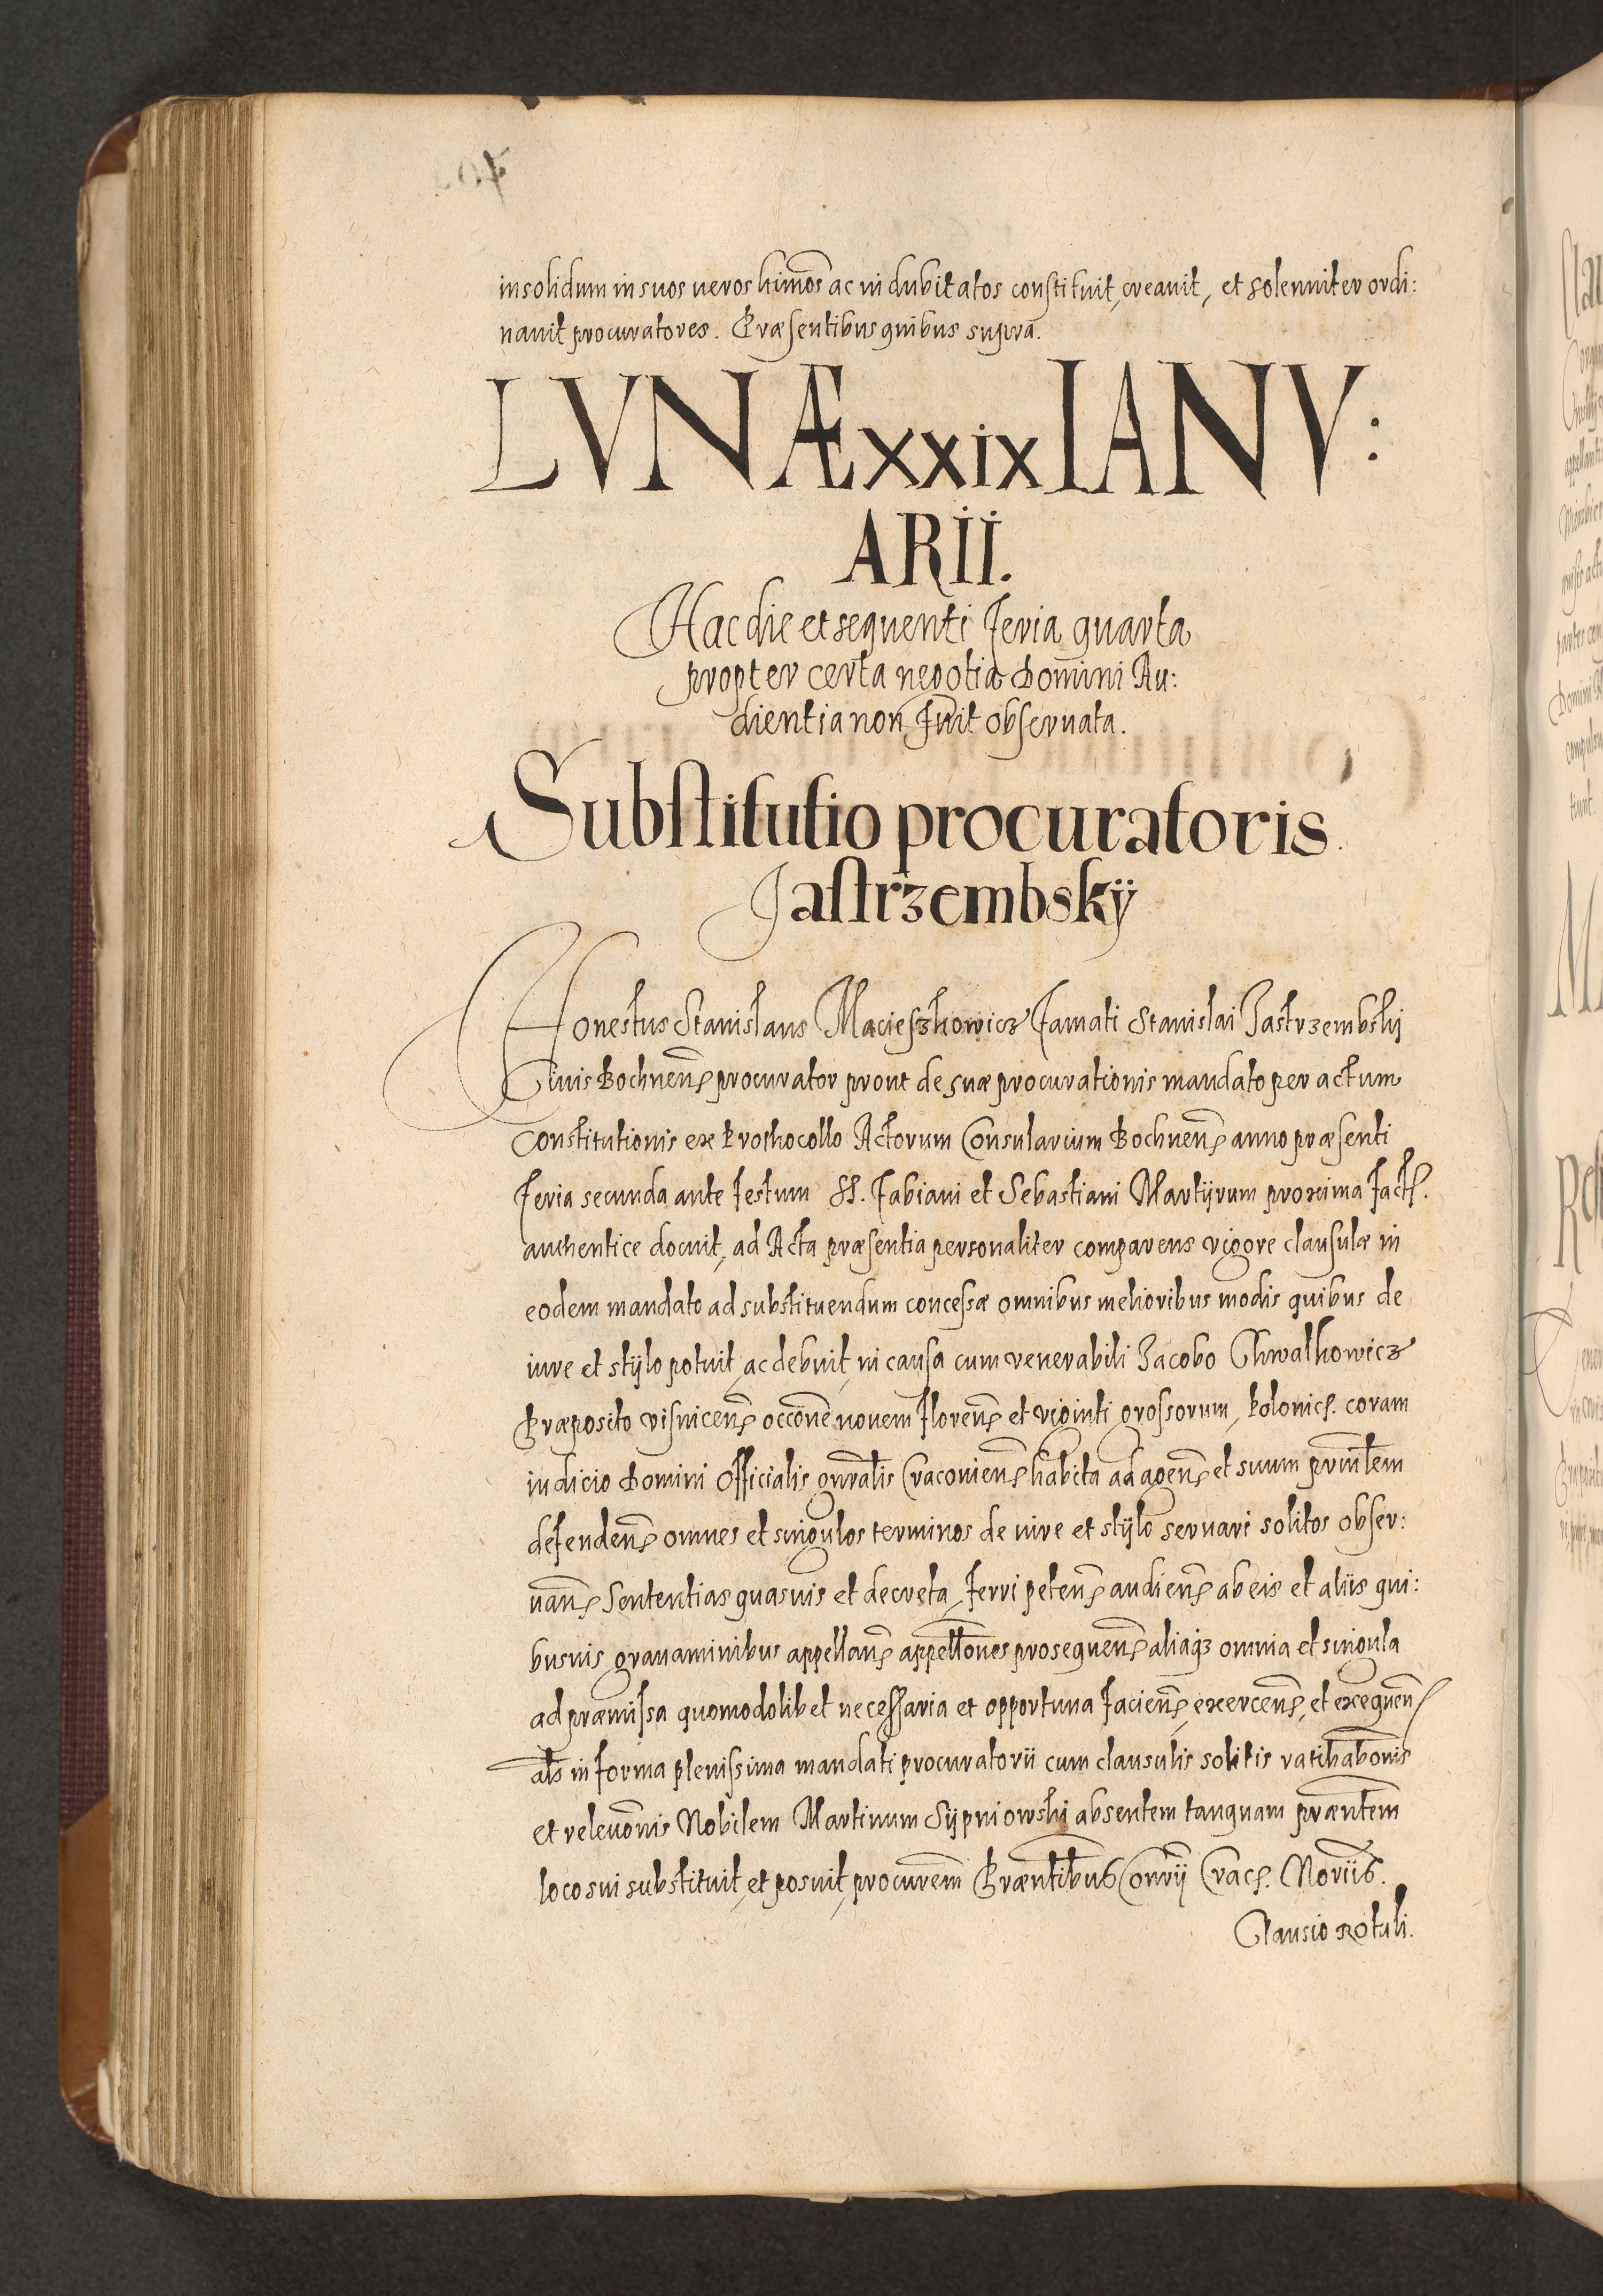 insolidum in suos veros l̃timos ac indubitatos constituit, creavit, et solenniter ordi:
navit procuratores. Præsentibus quibus supra.
LVNÆ xxix IANV:
ARII.
Hac die et sequenti feria quarta
propter certa negotia Domini Au:
dientia non fuit observata.
Substitutio procuratoris
Jastrzembskÿ
Honestus Stanislaus Macieszkowicz famati Stanislai Jastrzembskj
Civis Bochnen̄ procurator prout de suæ procurationis mandato per actum
Constitutionis ex Prothocollo Actorum Consularium Bochnen̄ anno præsenti
feria secunda ante festum SS. Fabiani et Sebastiani Martÿrum proxima fact̄.
authentice docuit, ad Acta præsentia personaliter comparens vigore clausulæ in
eodem mandato ad substituendum concessæ omnibus melioribus modis quibus de
iure et stÿlo potuit, ac debuit, in causa cum venerabili Jacobo Chwalkowicz
Præposito visnicen̄ occōne novem floren̄ et viginti grossorum, Polonic̄. coram
iudicio Domini Officialis gn̄ralis Cracovien̄ habita ad agen̄ et suum prn̄lem
defenden̄ omnes et singulos terminos de iure et stÿlo servari solitos obser:
van̄ sententias quasvis et decreta, ferri peten̄ audien̄ ab eis et aliis qui:
busvis gravaminibus appellan̄ appell̄ones prosequen̄ aliaq₃ omnia et singula
ad præmissa quomodolibet necessaria et opportuna facien̄, exercen̄, et exequen̄
al̄s in forma plenissima mandati procuratorii cum clausulis solitis ratihabōnis
et relevōnis Nobilem Martinum Sÿpniowskj absentem tanquam præn̄tem
loco sui substituit, et posuit, procūrem Præn̄tibus Con̄rÿ Crac̄. Nōriis.
Clausio Rotuli.